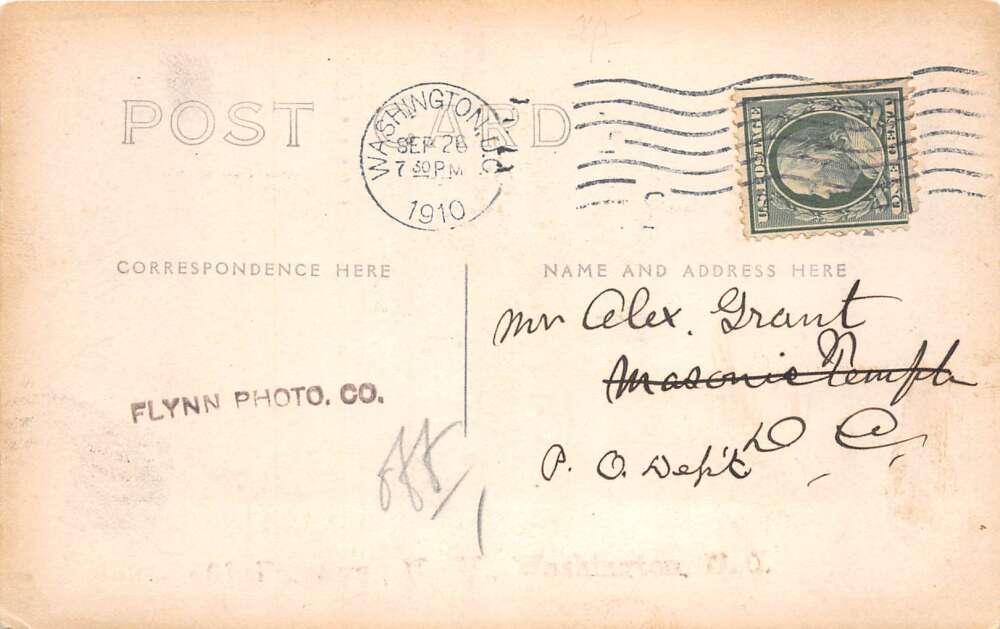 POST CARD
WASHINGTON, D.C.
SEP 26
7 30 PM
1910
U.S. POSTAGE
ONE CENT
CORRESPONDENCE HERE
NAME AND ADDRESS HERE
Mr Alex. Grant
Masonic Temple
D C,
P. O. Dep't
FLYNN PHOTO. CO.
Washington, D.C.